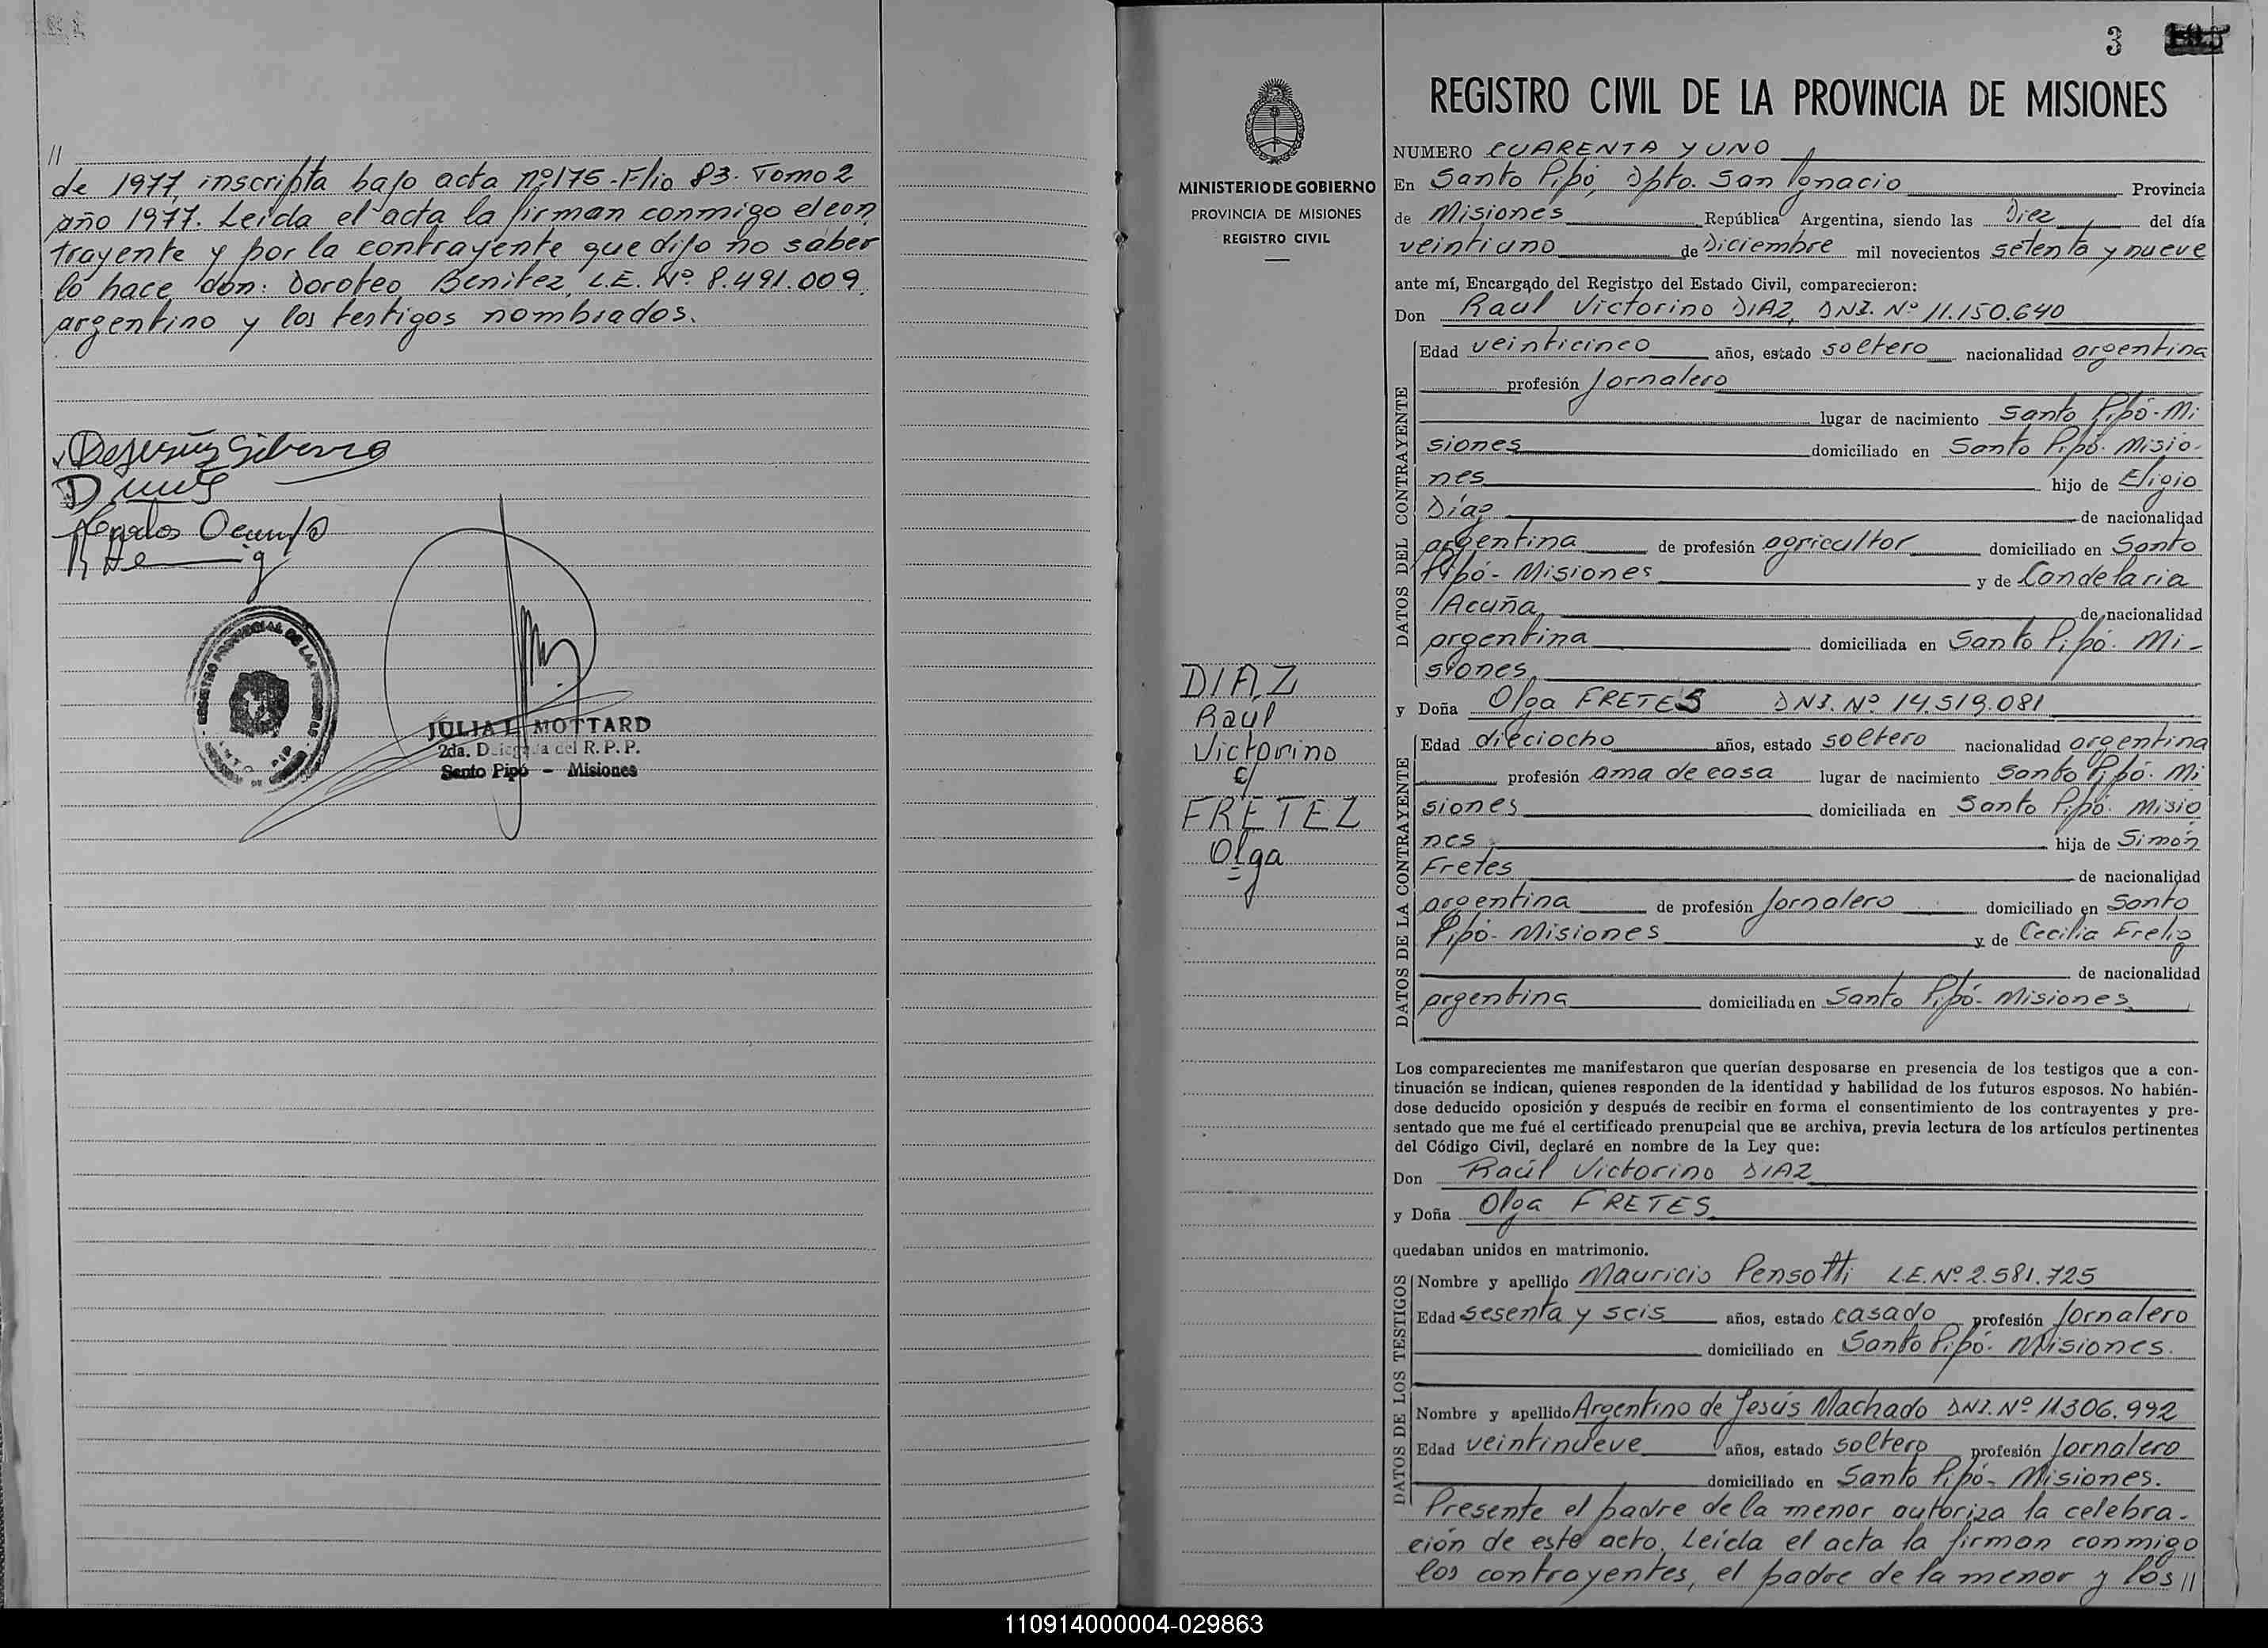 //
de 1977, inscripta bajo acta nº175-Flio 83. Tomo 2
año 1977. Leída el acta la firman conmigo el con
trayente y por la contrayente que dijo no saber
lo hace don: Doroteo Benitez, L.E. Nº 8.491.009,
argentino y los testigos nombrados.
JULIA L. MOTTARD
2da. Delegada del R.P.P.
Santo Pipó - Misiones
3
REGISTRO CIVIL DE LA PROVINCIA DE MISIONES
MINISTERIO DE GOBIERNO
PROVINCIA DE MISIONES
REGISTRO CIVIL
DIAZ
Raúl
Victorino
c/
FRETEZ
Olga
NUMERO CUARENTA Y UNO
En Santo Pipó, Dpto. San Ignacio Provincia
de Misiones República Argentina, siendo las Diez del día
veintiuno de Diciembre mil novecientos setenta y nueve
ante mí, Encargado del Registro del Estado Civil, comparecieron:
Don Raúl Victorino DIAZ, DNI. Nº 11.150.640
DATOS DEL CONTRAYENTE
Edad veinticinco años, estado soltero nacionalidad argentina
profesión Jornalero
lugar de nacimiento Santo Pipó-Mi
siones domiciliado en Santo Pipó. Misio-
nes hijo de Eligio
Díaz de nacionalidad
argentina de profesión agricultor domiciliado en Santo
Pipó- Misiones y de Candelaria
Acuña de nacionalidad
argentina domiciliada en Santo Pipó. Mi-
siones
y Doña Olga FRETES DNI. Nº 14.519.081
DATOS DE LA CONTRAYENTE
Edad dieciocho años, estado soltero nacionalidad argentina
profesión ama de casa lugar de nacimiento Santo Pipó. Mi
siones domiciliada en Santo Pipó. Misio
nes hija de Simón
Fretes de nacionalidad
argentina de profesión Jornalero domiciliado en Santo
Pipó- Misiones y de Cecilia Frelig
de nacionalidad
argentina domiciliada en Santo Pipó- Misiones
Los comparecientes me manifestaron que querían desposarse en presencia de los testigos que a con-
tinuación se indican, quienes responden de la identidad y habilidad de los futuros esposos. No habién-
dose deducido oposición y después de recibir en forma el consentimiento de los contrayentes y pre-
sentado que me fué el certificado prenupcial que se archiva, previa lectura de los artículos pertinentes
del Código Civil, declaré en nombre de la Ley que:
Don Raúl Victorino DIAZ
y Doña Olga FRETES
quedaban unidos en matrimonio.
DATOS DE LOS TESTIGOS
Nombre y apellido Mauricio Pensotti L.E. Nº 2.581.725
Edad sesenta y seis años, estado casado profesión Jornalero
domiciliado en Santo Pipó- Misiones.
Nombre y apellido Argentino de Jesús Machado DNI. Nº 11.306.992
Edad veintinueve años, estado soltero profesión Jornalero
domiciliado en Santo Pipó- Misiones.
Presente el padre de la menor autoriza la celebra-
ción de este acto. Leída el acta la firman conmigo
los contrayentes, el padre de la menor y los //
110914000004-029863